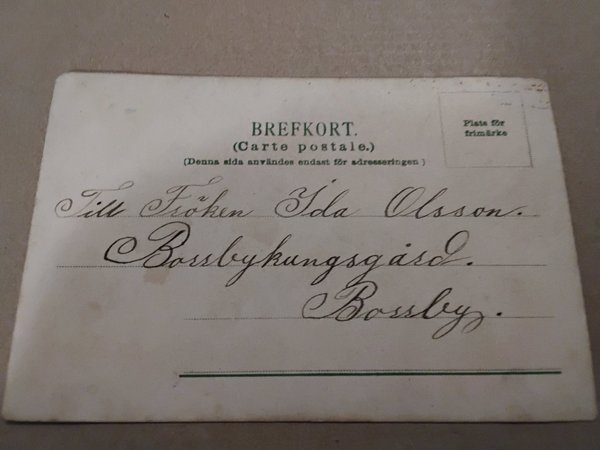 BREFKORT.
(Carte postale.)
(Denna sida användes endast för adresseringen)
Plats för
frimärke
Till Fröken Ida Olsson.
Bossbykungsgård.
Bossby.